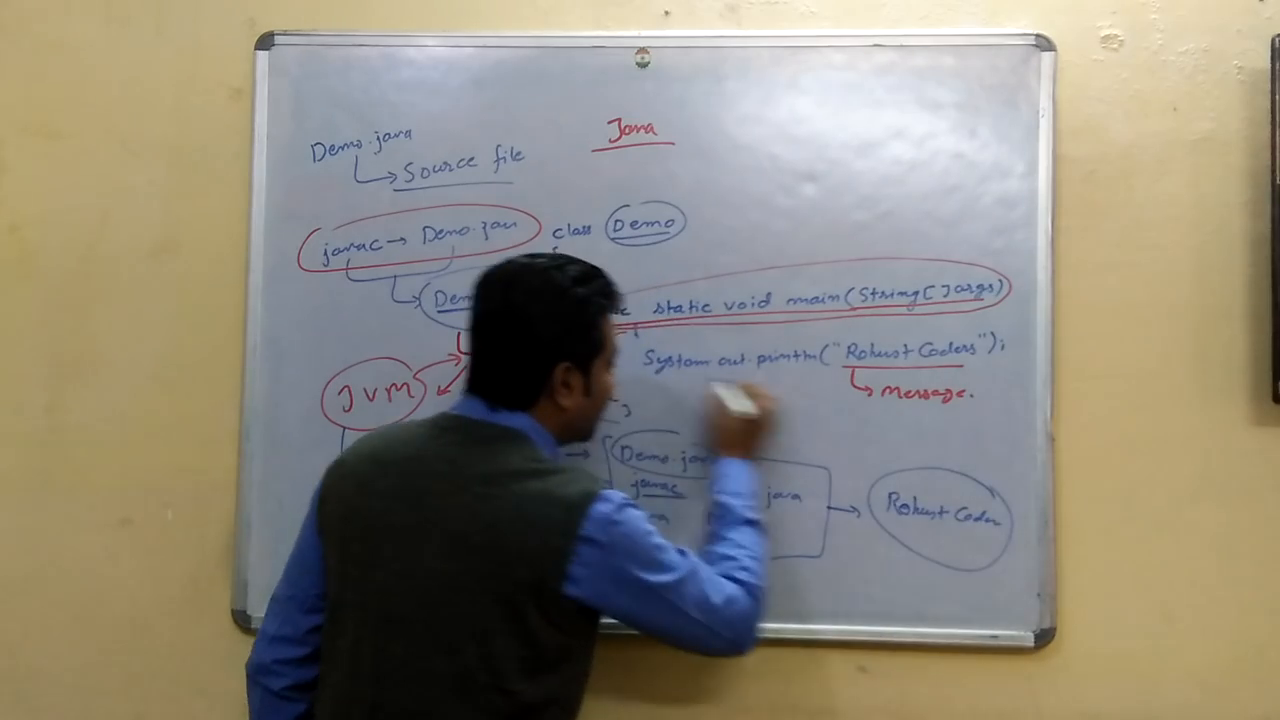 Java
Demo.java
Source file
javac → Demo.java
class Demo
static void main(String[]args)
System.out.println("Robust Coders");
Message.
JVM
}
→
javac
java
→ Robust Coder